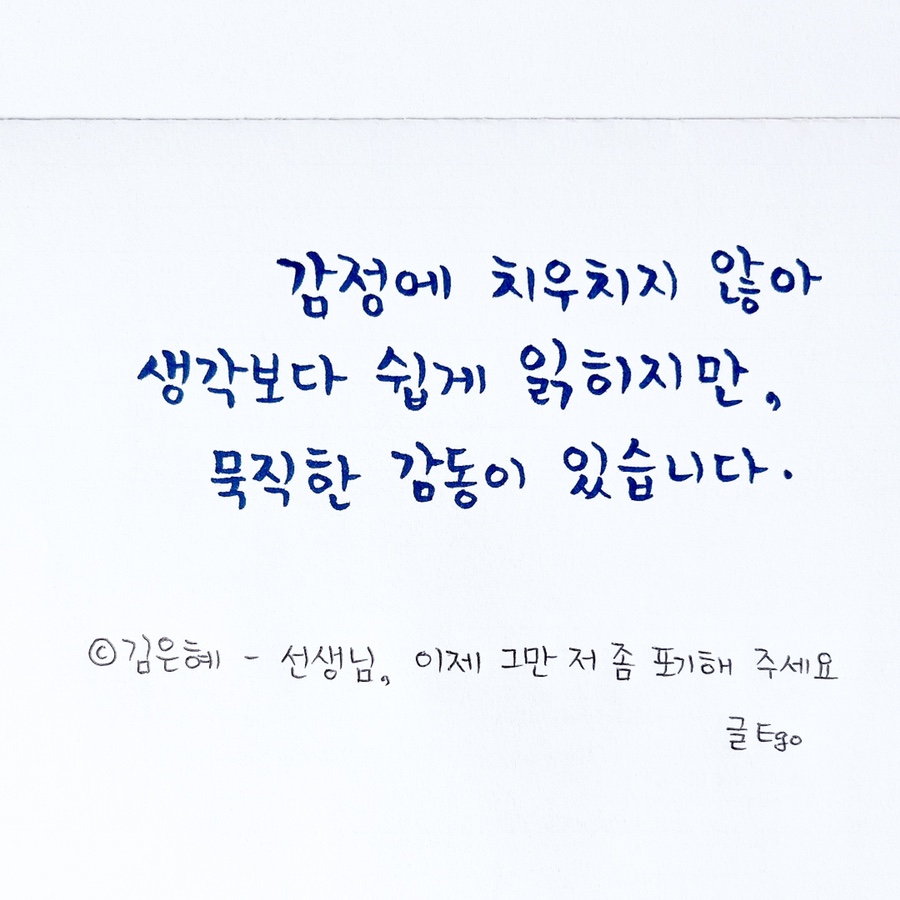 감정에 치우치지 않아
생각보다 쉽게 읽히지만,
묵직한 감동이 있습니다.
©김은혜 - 선생님, 이제 그만 저 좀 포기해 주세요
글 Ego